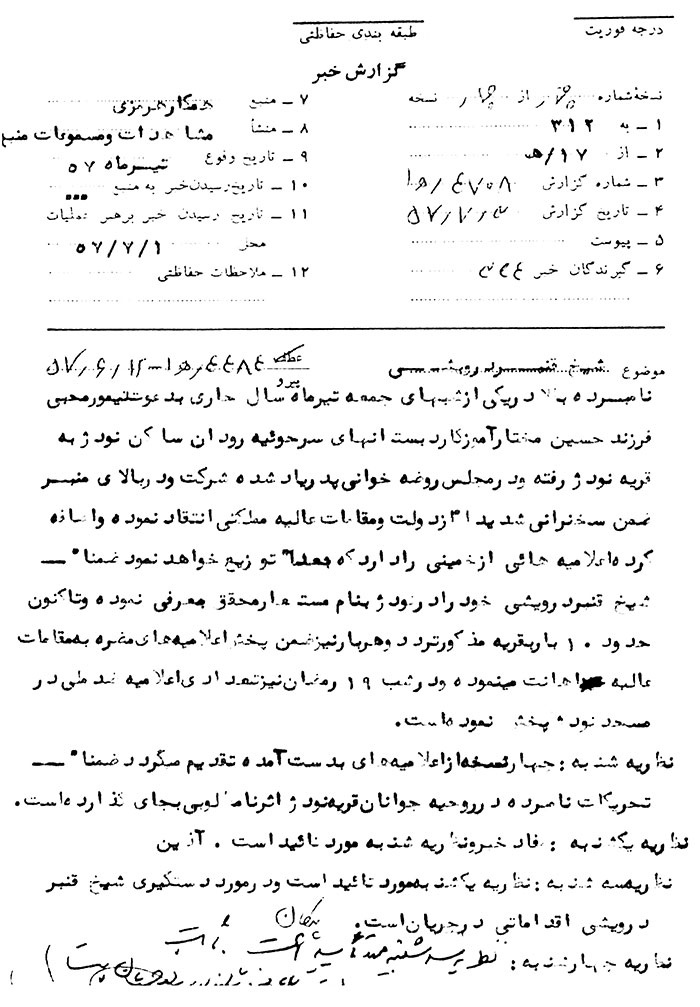 درجه فوریت
طبقه بندی حفاظتی
گزارش خبر
نسخهٔ شماره چهار از چهار نسخه
۱ ـ به ۳۱۲
۲ ـ از ۱۷/هـ
۳ ـ شماره گزارش
۴ ـ تاریخ گزارش
۵ ـ پیوست
۶ ـ گیرندگان خبر
۷ ـ منبع همکار مرزی
۸ ـ منشأ مشاهدات و مسموعات منبع
۹ ـ تاریخ وقوع تیرماه ۵۷
۱۰ ـ تاریخ رسیدن خبر به منبع ...
۱۱ ـ تاریخ رسیدن خبر برهبر عملیات
محل ۵۷/۷/۱
۱۲ ـ ملاحظات حفاظتی
موضوع شیخ قنبر درویشی
عطف
پیرو
نامبرده بالا در یکی از شبهای جمعه تیرماه سال جاری بدعوت تیمور محبی
فرزند حسین مختار آموزگار دبستانهای سرحوئیه رودان ساکن نودژ به
قریه نودژ رفته و در مجلس روضه خوانی پدر یاد شده شرکت و در بالای منبر
ضمن سخنرانی شدید از دولت و مقامات عالیه مملکتی انتقاد نموده و اضافه
کرده اعلامیه هائی از خمینی را دارد که بعداً توزیع خواهد نمود ضمناً ـــ
شیخ قنبر درویشی خود را در نودژ بنام مستعار محقق معرفی نموده و تاکنون
حدود ۱۰ بار بقریه مذکور تردد و هر بار نیز ضمن پخش اعلامیه های مضره به مقامات
عالیه اهانت مینموده و در شب ۱۹ رمضان نیز تعدادی اعلامیه ضد ملی در
مسجد نودژ پخش نموده است.
نظریه شنبه : چهار نسخه از اعلامیه های بدست آمده تقدیم میگردد ضمناً ـــ
تحریکات نامبرده در روحیه جوانان قریه نودژ اثر نامطلوبی بجای گذارده است.
نظریه یکشنبه : مفاد خبر و نظریه شنبه مورد تائید است . آذین
نظریه سه شنبه : نظریه یکشنبه مورد تائید است و در مورد دستگیری شیخ قنبر
درویشی اقداماتی در جریان است.
نظریه چهارشنبه : نظریه سه شنبه مورد تأیید است